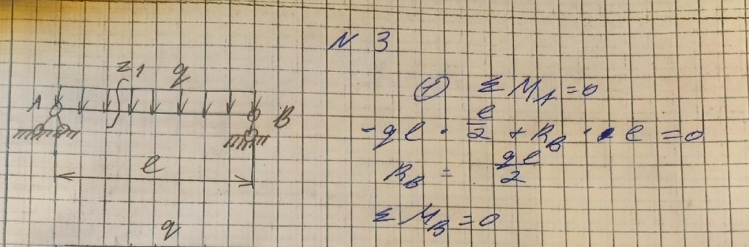 N 3
z1 q
A B
l
q
+ Σ M_A = 0
-ql · l/2 + R_B · l = 0
R_B = ql/2
Σ M_B = 0